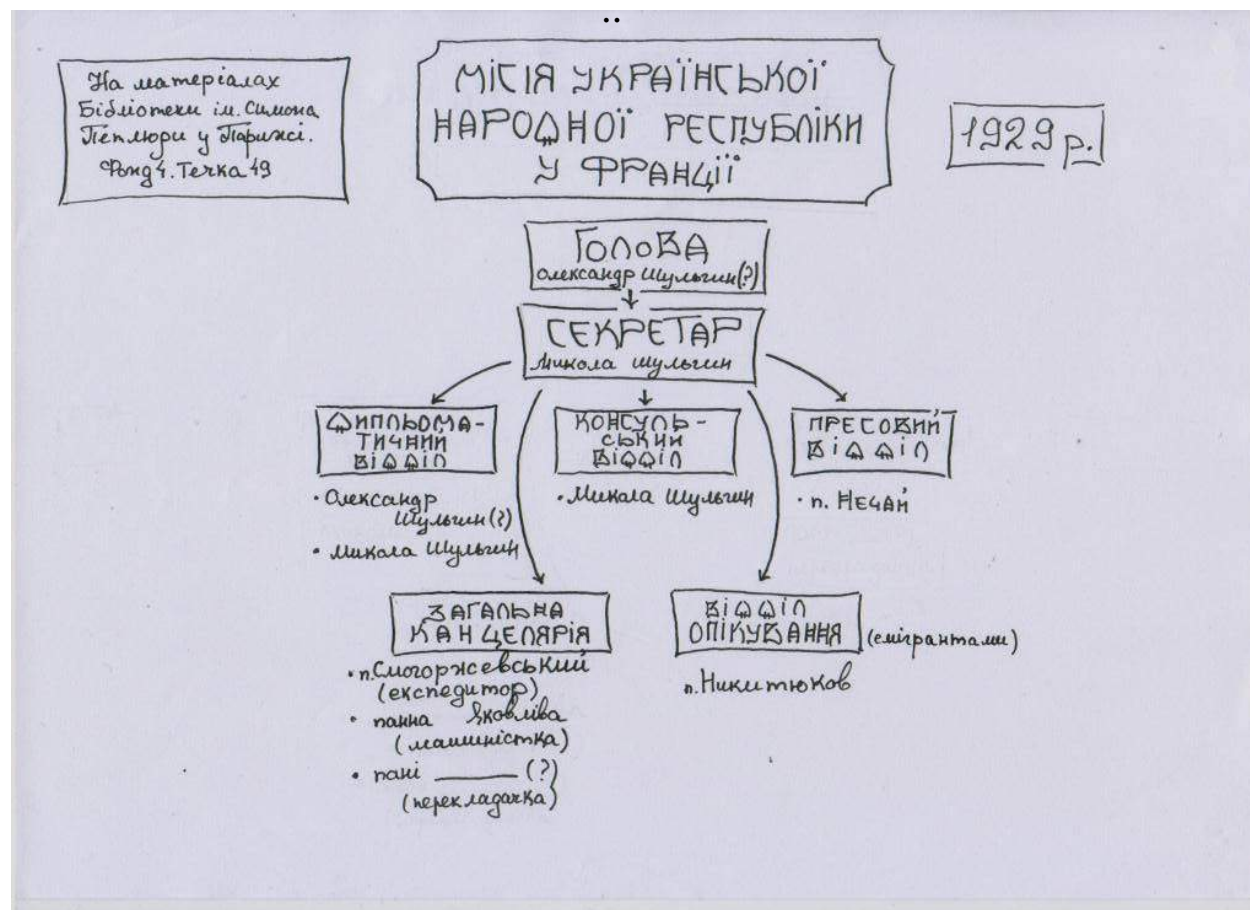 На матеріалах
Бібліотеки ім. Симона
Петлюри у Парижі.
Фонд 4. Течка 49
МІСІЯ УКРАЇНСЬКОЇ
НАРОДНОЇ РЕСПУБЛІКИ
У ФРАНЦІЇ
1929 р.
ГОЛОВА
Олександр Шульгин (?)
СЕКРЕТАР
Микола Шульгин
ДИПЛЬОМА-
ТИЧНИЙ
ВІДДІЛ
• Олександр
Шульгин (?)
• Микола Шульгин
КОНСУЛЬ-
СЬКИЙ
ВІДДІЛ
• Микола Шульгин
ПРЕСОВИЙ
ВІДДІЛ
• п. Нечай
ЗАГАЛЬНА
КАНЦЕЛЯРІЯ
• п. Смогоржевський
(експедитор)
• панна Яковліва
(машиністка)
• пані ______ (?)
(перекладачка)
ВІДДІЛ
ОПІКУВАННЯ (емігрантами)
п. Никитюков